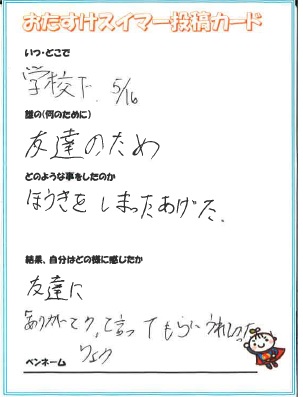 おたすけスイマー投稿カード
いつ・どこで
学校下. 5/16
誰の(何のために)
友達のため
どのような事をしたのか
ほうきを しまったあげた.
結果、自分はどの様に感じたか
友達に
ありがとうって言ってもらいうれしかった
ペンネーム